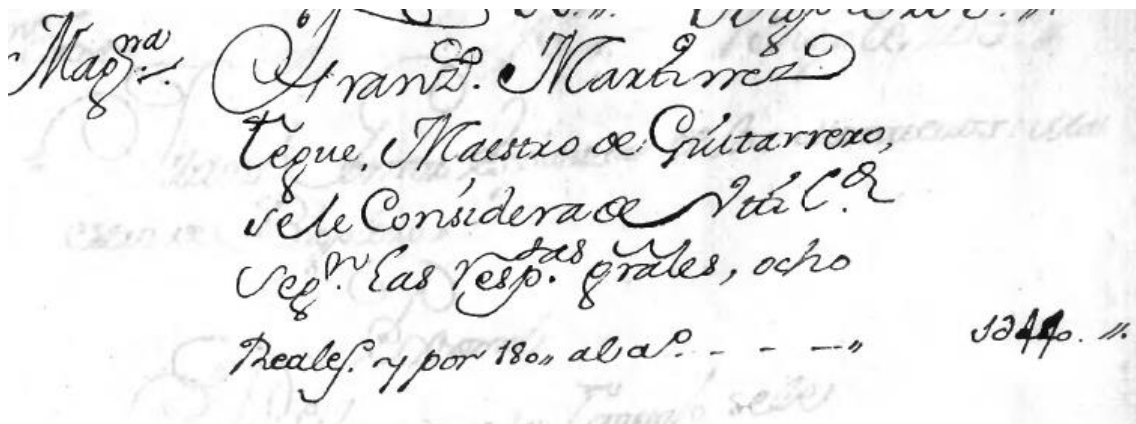 Mag.na Franz.co Martinez
tegue, Maestro de Guitarrero,
se le Considera de Vtil C.da
seg.n las resp.tas grãles, ocho
Reales. y por 180,, al a.o - - - -,, 1044o. ,,.